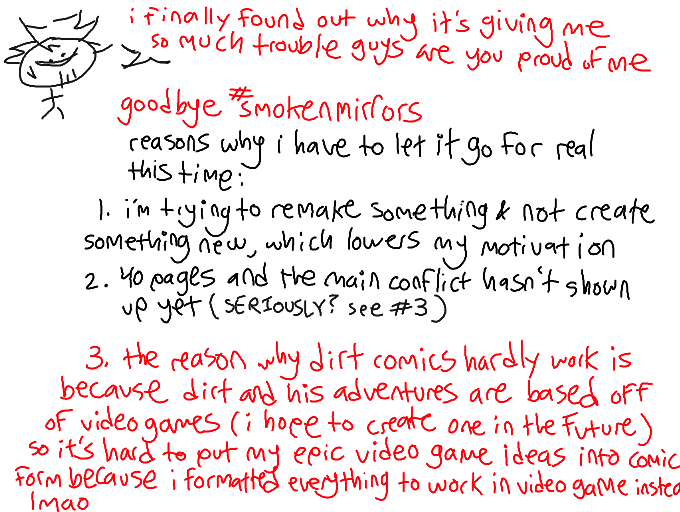 i finally found out why it's giving me
so much trouble guys are you proud of me
goodbye #smokenmirrors
reasons why i have to let it go for real
this time:
1. i'm trying to remake something & not create
something new, which lowers my motivation
2. 40 pages and the main conflict hasn't shown
up yet (SERIOUSLY? see #3)
3. the reason why dirt comics hardly work is
because dirt and his adventures are based off
of video games (i hope to create one in the future)
so it's hard to put my epic video game ideas into comic
form because i formatted everything to work in video game instea
lmao